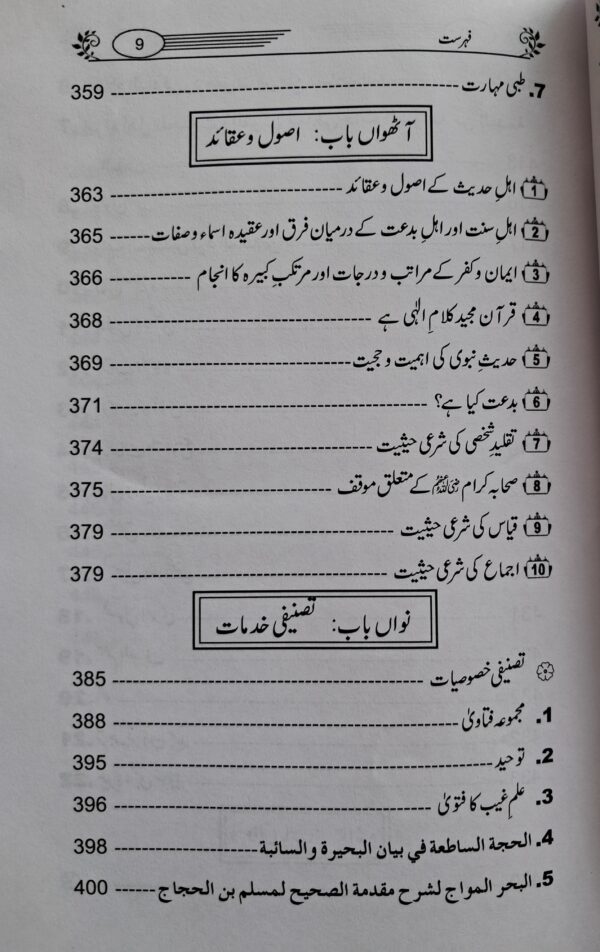 فہرست 9
7. طبی مہارت ---------- 359
آٹھواں باب: اصول و عقائد
1 اہلِ حدیث کے اصول و عقائد ---------- 363
2 اہلِ سنت اور اہلِ بدعت کے درمیان فرق اور عقیدہ اسماء و صفات ------ 365
3 ایمان و کفر کے مراتب و درجات اور مرتکبِ کبیرہ کا انجام ---------- 366
4 قرآن مجید کلامِ الٰہی ہے ---------- 368
5 حدیثِ نبوی کی اہمیت و حجیت ---------- 369
6 بدعت کیا ہے؟ ---------- 371
7 تقلیدِ شخصی کی شرعی حیثیت ---------- 374
8 صحابہ کرام رضی اللہ عنہم کے متعلق موقف ---------- 375
9 قیاس کی شرعی حیثیت ---------- 379
10 اجماع کی شرعی حیثیت ---------- 379
نواں باب: تصنیفی خدمات
تصنیفی خصوصیات ---------- 385
1. مجموعہ فتاویٰ ---------- 388
2. توحید ---------- 395
3. علمِ غیب کا فتویٰ ---------- 396
4. الحجة الساطعة في بيان البحيرة والسائبة ---------- 398
5. البحر المواج لشرح مقدمة الصحيح لمسلم بن الحجاج ------ 400